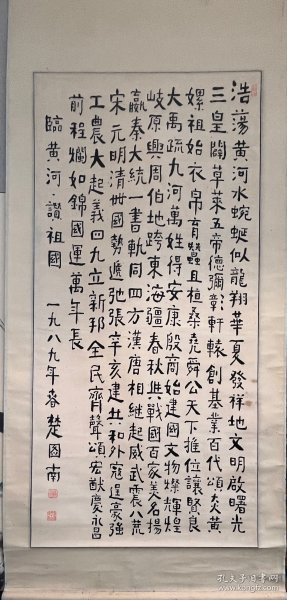 浩蕩黃河水蜿蜒似龍翔華夏發祥地文明啟曙光
三皇闢草萊五帝德彌彰軒轅創基業百代頌炎黃
嫘祖始衣帛育蠶且植桑堯舜公天下推位讓賢良
大禹疏九河萬姓得安康殷商始建國文物燦輝煌
岐原興周伯地跨東海疆春秋與戰國百家美名揚
嬴秦大統一書軌同四方漢唐相繼起威武震八荒
宋元明清世國勢遞弛張辛亥建共和外寇逞豪強
工農大起義四九立新邦全民齊聲頌宏猷慶永昌
前程爛如錦國運萬年長
臨黃河·讚祖國 一九八九年春楚圖南
孔夫子旧书网